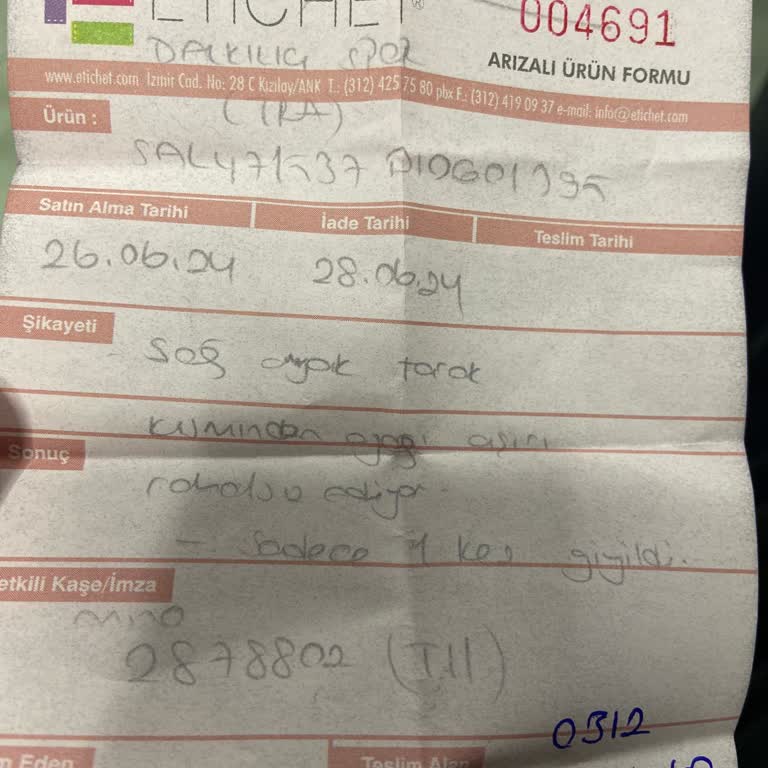 ETICHET®
004691
DALKILIÇ SPOR
ARIZALI ÜRÜN FORMU
www.etichet.com İzmir Cad. No: 28 C Kızılay/ANK T.: (312) 425 75 80 pbx F.: (312) 419 09 37 e-mail: info@etichet.com
Ürün :
SAL471537
Satın Alma Tarihi İade Tarihi Teslim Tarihi
26.06.24 28.06.24
Şikayeti
Sağ ayak tarak
kısmından ayağı aşırı
Sonuç
rahatsız ediyor.
- Sadece 1 kez giyildi.
etkili Kaşe/İmza
2878802
0312
n Eden Teslim Alan